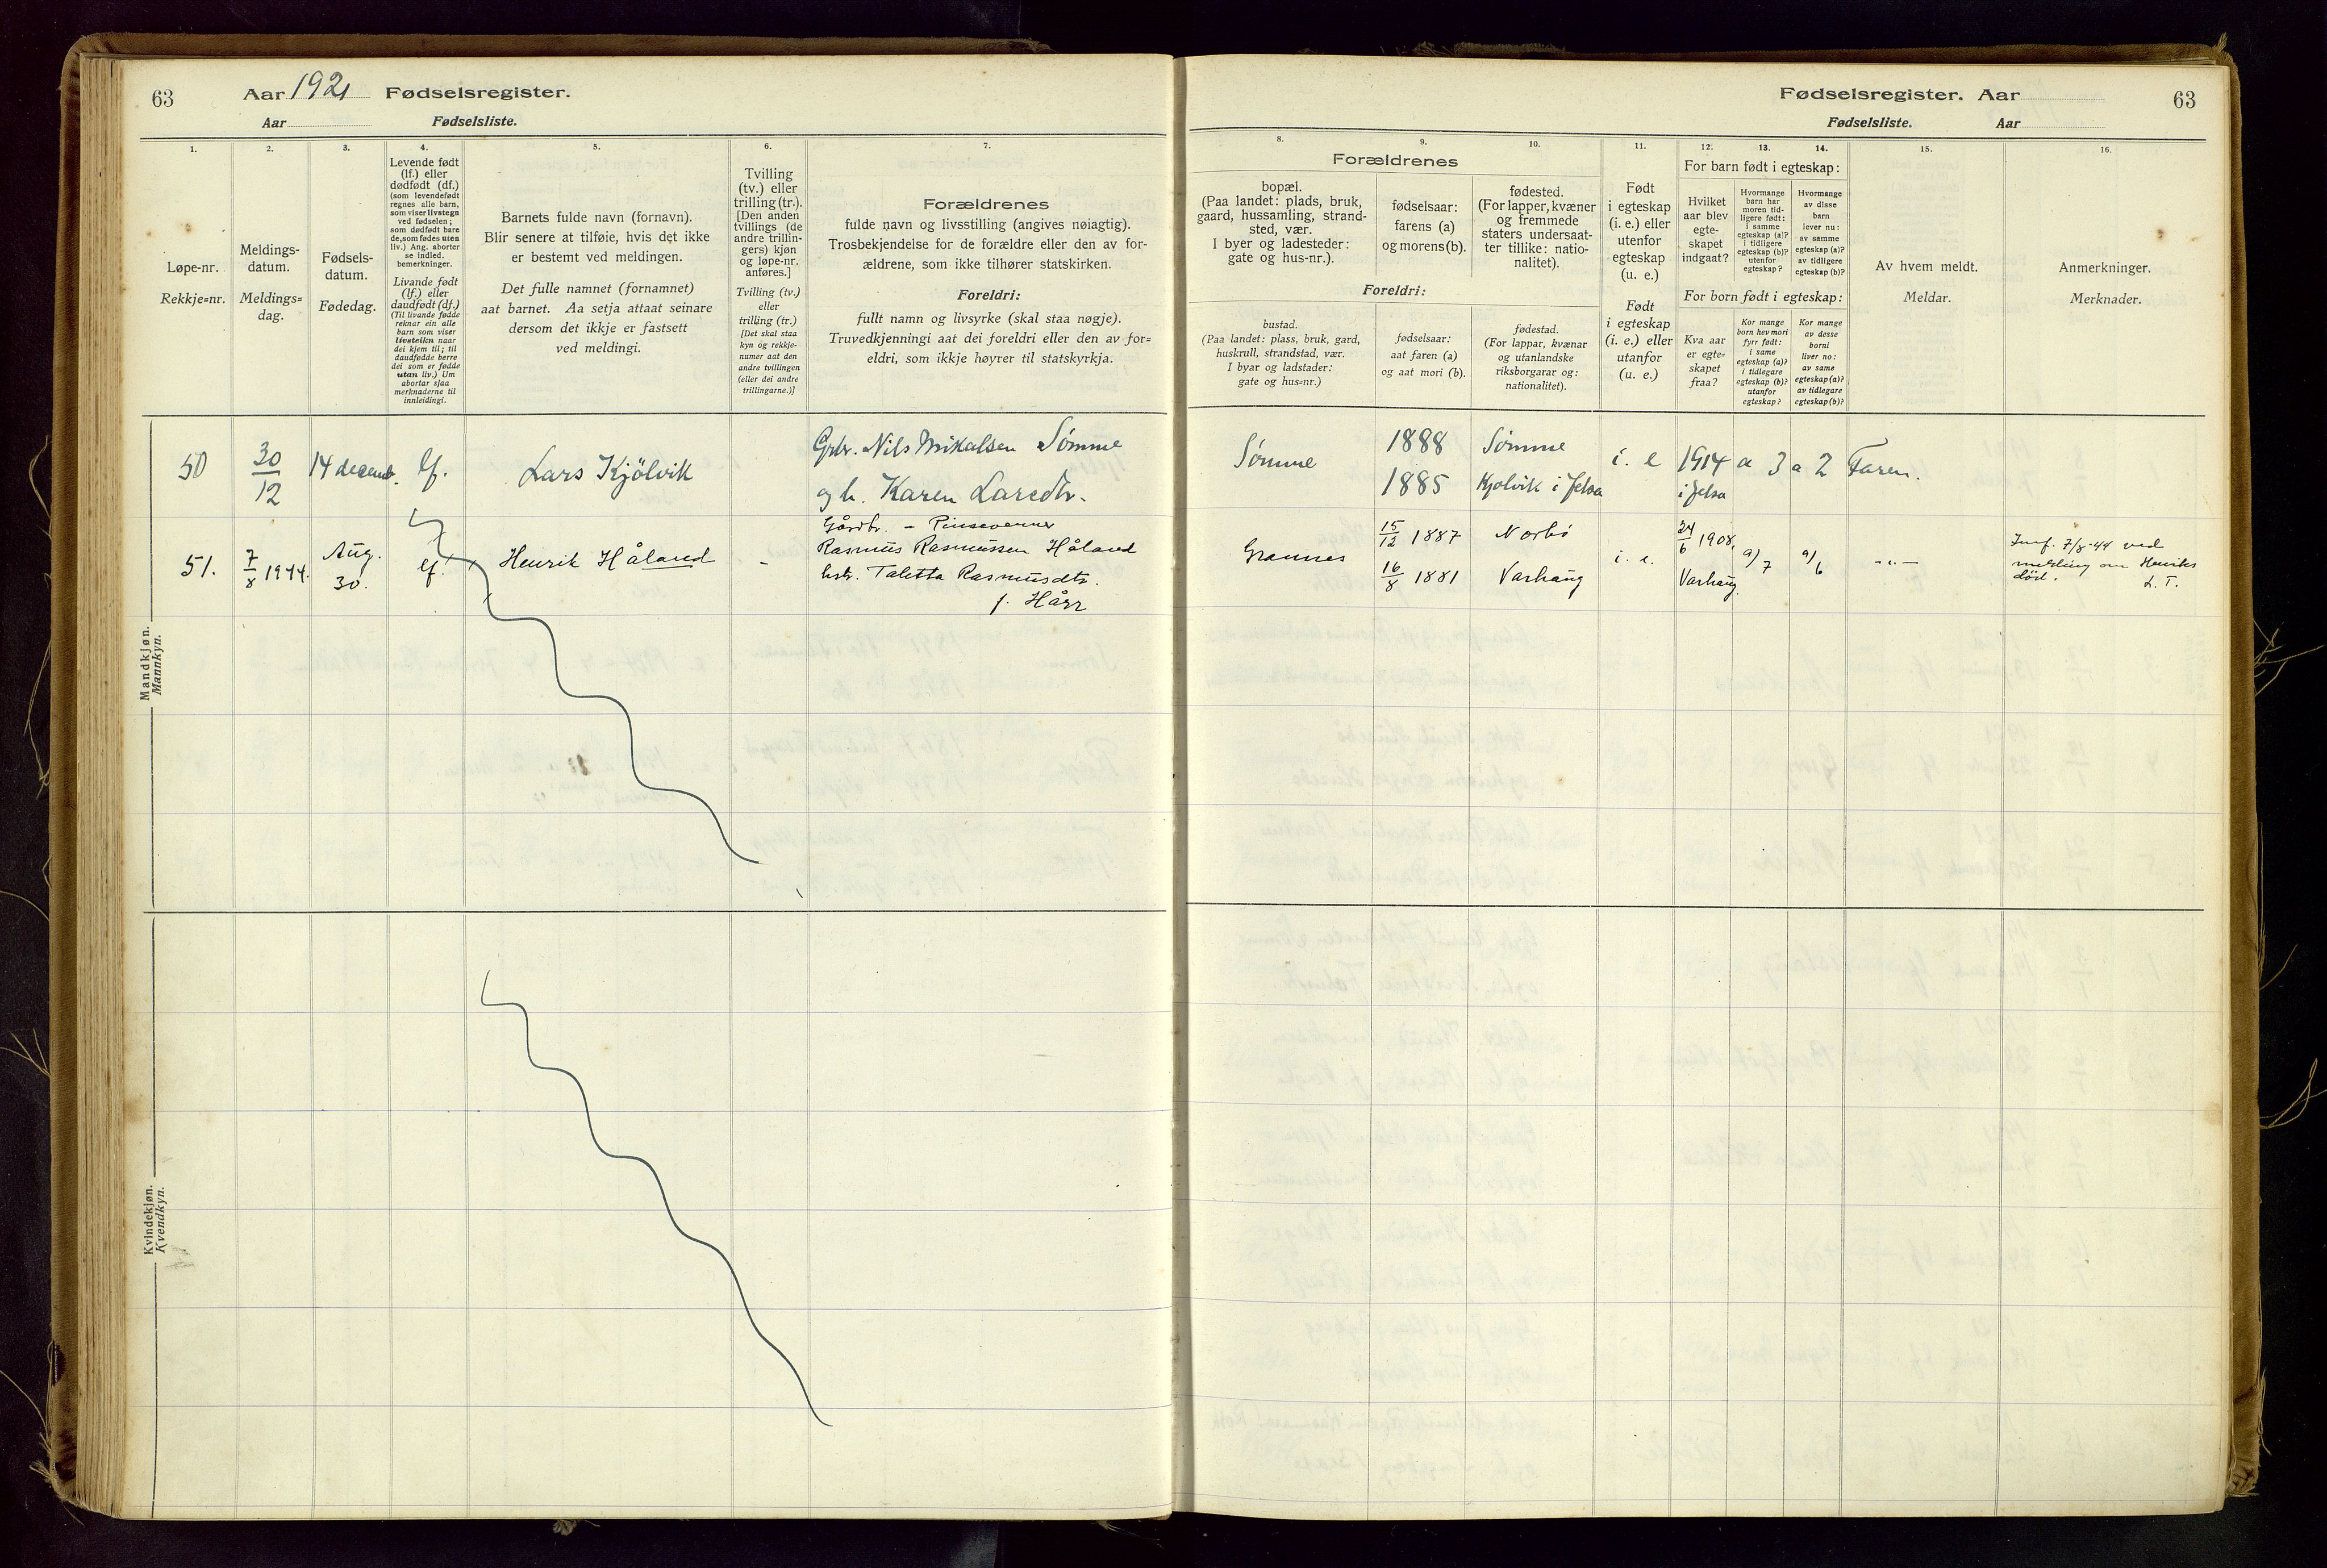 63
Aar 1921 Fødselsregister.
Aar Fødselsliste.
Fødselsregister. Aar
63
Fødselsliste. Aar
1.
Løpe-nr.
Rekkje=nr.
2.
Meldings-
datum.
Meldings=
dag.
3.
Fødsels-
datum.
Fødedag.
4.
Levende født
(lf.) eller
dødfødt (df.)
(som levendefødt
regnes alle barn,
som viser livstegn
ved fødselen;
som dødfødt bare
de, som fødes uten
liv.) Ang. aborter
se indled.
bemerkninger.
Livande født
(lf.) eller
daudfødt (df.)
(Til livande fødde
reknar ein alle
barn som viser
livsteikn naar
dei kjem til; til
daudfødde berre
dei som er fødde
utan liv.) Um
abortar sjaa
merknaderne til
innleidingi.
5.
Barnets fulde navn (fornavn).
Blir senere at tilføie, hvis det ikke
er bestemt ved meldingen.
Det fulle namnet (fornamnet)
aat barnet. Aa setja attaat seinare
dersom det ikkje er fastsett
ved meldingi.
6.
Tvilling
(tv.) eller
trilling (tr.).
[Den anden
tvillings (de
andre trillin-
gers) kjøn
og løpe-nr.
anføres.]
Tvilling (tv.)
eller
trilling (tr.)
[Det skal staa
kyn og rekkje-
numer aat den
andre tvillingen
(eller dei andre
trillingarne.)]
7.
Forældrenes
fulde navn og livsstilling (angives nøiagtig).
Trosbekjendelse for de forældre eller den av for-
ældrene, som ikke tilhører statskirken.
Foreldri:
fullt namn og livsyrke (skal staa nøgje).
Truvedkjenningi aat dei foreldri eller den av for=
eldri, som ikkje høyrer til statskyrkja.
8.
9.
10.
Forældrenes
bopæl.
(Paa landet: plads, bruk,
gaard, hussamling, strand-
sted, vær.
I byer og ladesteder:
gate og hus-nr.).
fødselsaar:
farens (a)
og morens (b).
fødested.
(For lapper, kvæner
og fremmede
staters undersaat-
ter tillike: natio-
nalitet).
Foreldri:
bustad.
(Paa landet: plass, bruk, gard,
huskrull, strandstad, vær.
I byar og ladstader:
gate og hus=nr.)
fødselsaar:
aat faren (a)
og aat mori (b).
fødestad.
(For lappar, kvænar
og utanlandske
riksborgarar og:
nationalitet).
11.
Født
i egteskap
(i. e.) eller
utenfor
egteskap
(u. e.)
Født
i egteskap
(i. e.) eller
utanfor
(u. e.)
12.
13.
14.
For barn født i egteskap:
Hvilket
aar blev
egte-
skapet
indgaat?
Hvormange
barn har
moren tid-
ligere født:
i samme
egteskap (a)?
i tidligere
egteskap (b)?
utenfor
egteskap?
Hvormange
av disse
barn
lever nu:
av samme
egteskap (a)?
av tidligere
egteskap (b)?
For born født i egteskap:
Kva aar
er egte=
skapet
fraa?
Kor mange
born hev mori
fyrr født:
i same
egteskap (a)?
i tidlegare
egteskap (b)?
utanfor
egteskap?
Kor mange
av desse
borni
liver no:
av same
egteskap (a)?
av tidlegare
egteskap (b)?
15.
Av hvem meldt.
Meldar.
16.
Anmerkninger.
Merknader.
Mandkjøn.
Mannkyn.
50 30/12 14 decemb. lf. Lars Kjölvik
Grbr. Nils Mikalsen Sömme
og h. Karen Larsdtr.
Sömme
1888 Sömme
1885 Kjölvik i Jelsa
i. e 1914 a 3 a 2 Faren.
i Jelsa
51. 7/8 1944. Aug. 30. lf. Henrik Håland -
Gårdbr. - Pinsevenner
Rasmus Rasmussen Håland
hstr. Taletta Rasmusdtr.
f. Hårr
Grannes
15/12 1887 Norbö
16/8 1881 Varhaug
i. e.
24/6 1908,
Varhaug.
a/7
a/6
- " -
Innf. 7/8-44 ved
melding om Henriks
död. L. T.
Kvindekjøn.
Kvendkyn.